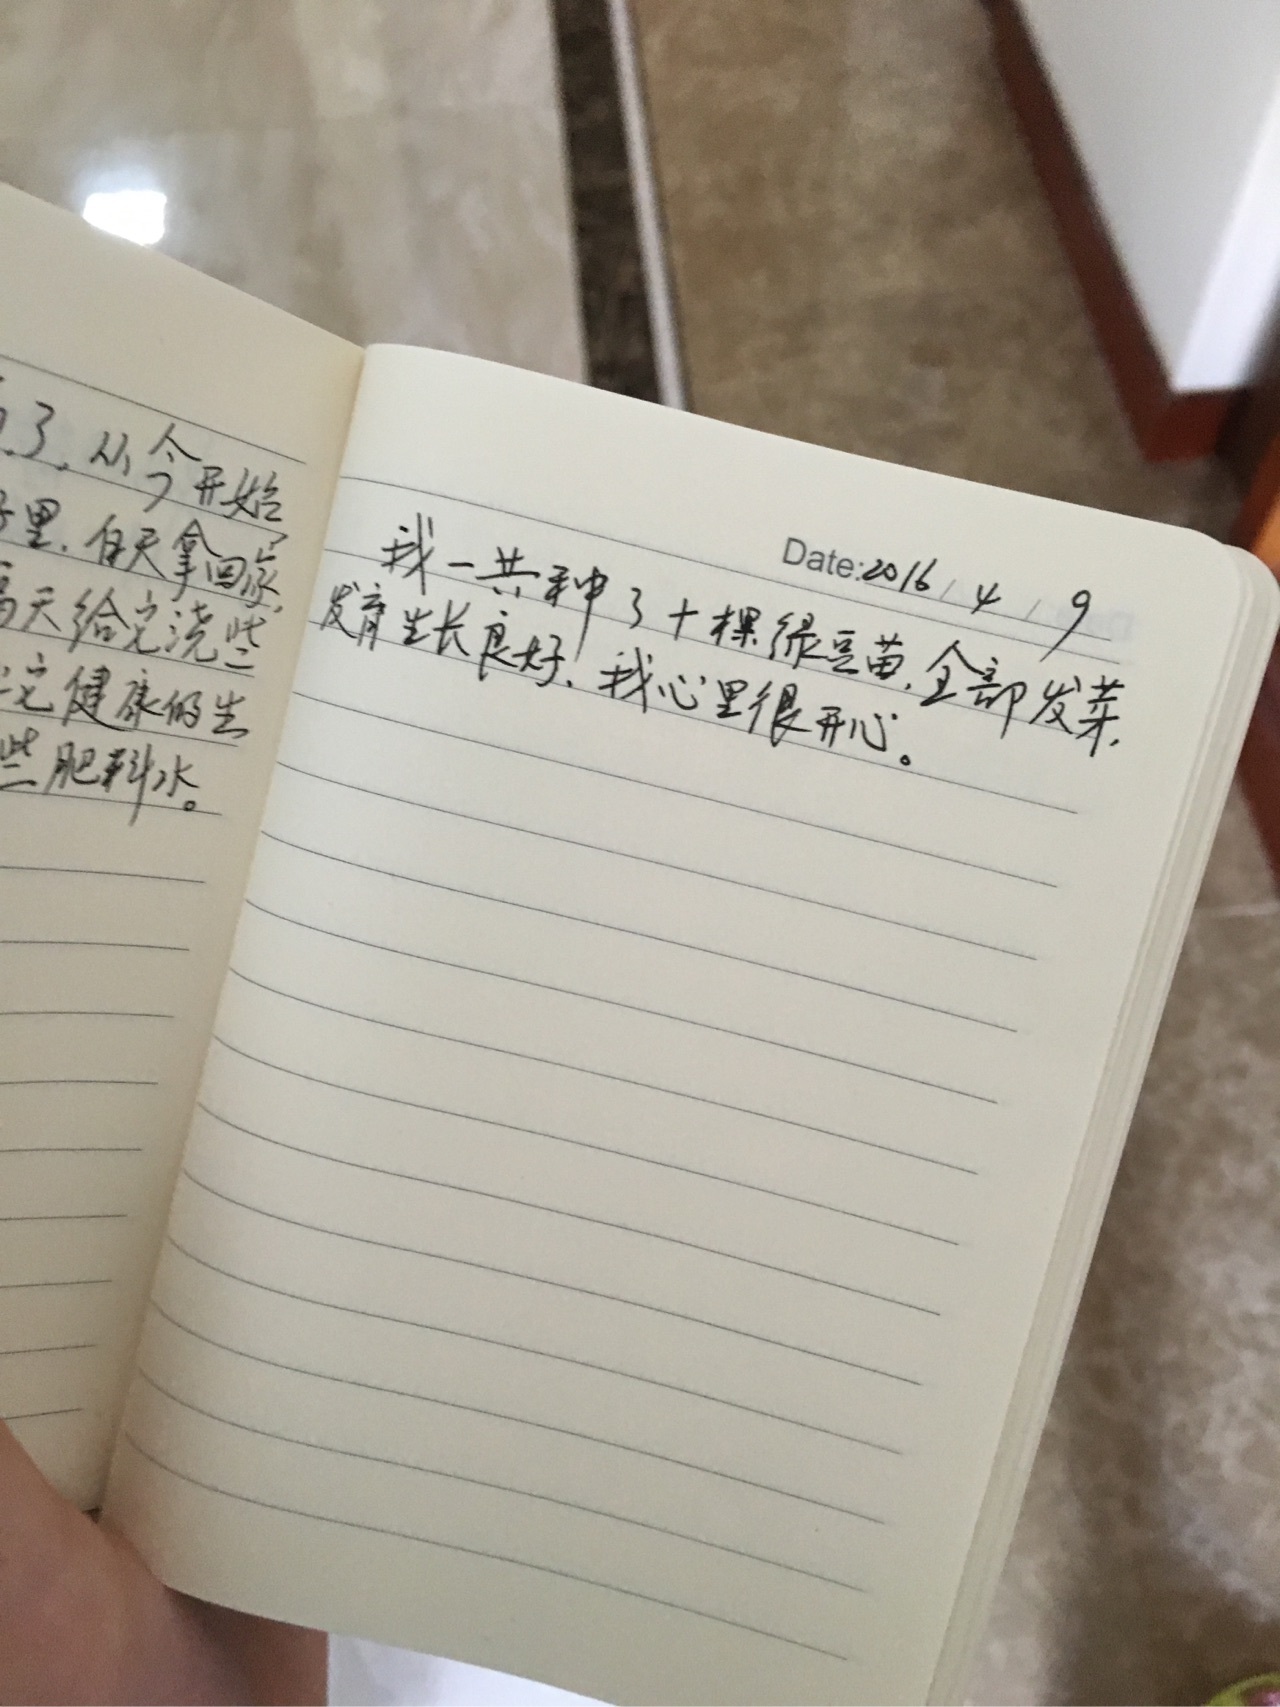 了.从今开始
里.白天拿回家,
天给它浇些
它健康的生
些肥料水。
Date:2016/4/9
我一共种了十棵绿豆苗,全部发菜,
发育生长良好,我心里很开心。